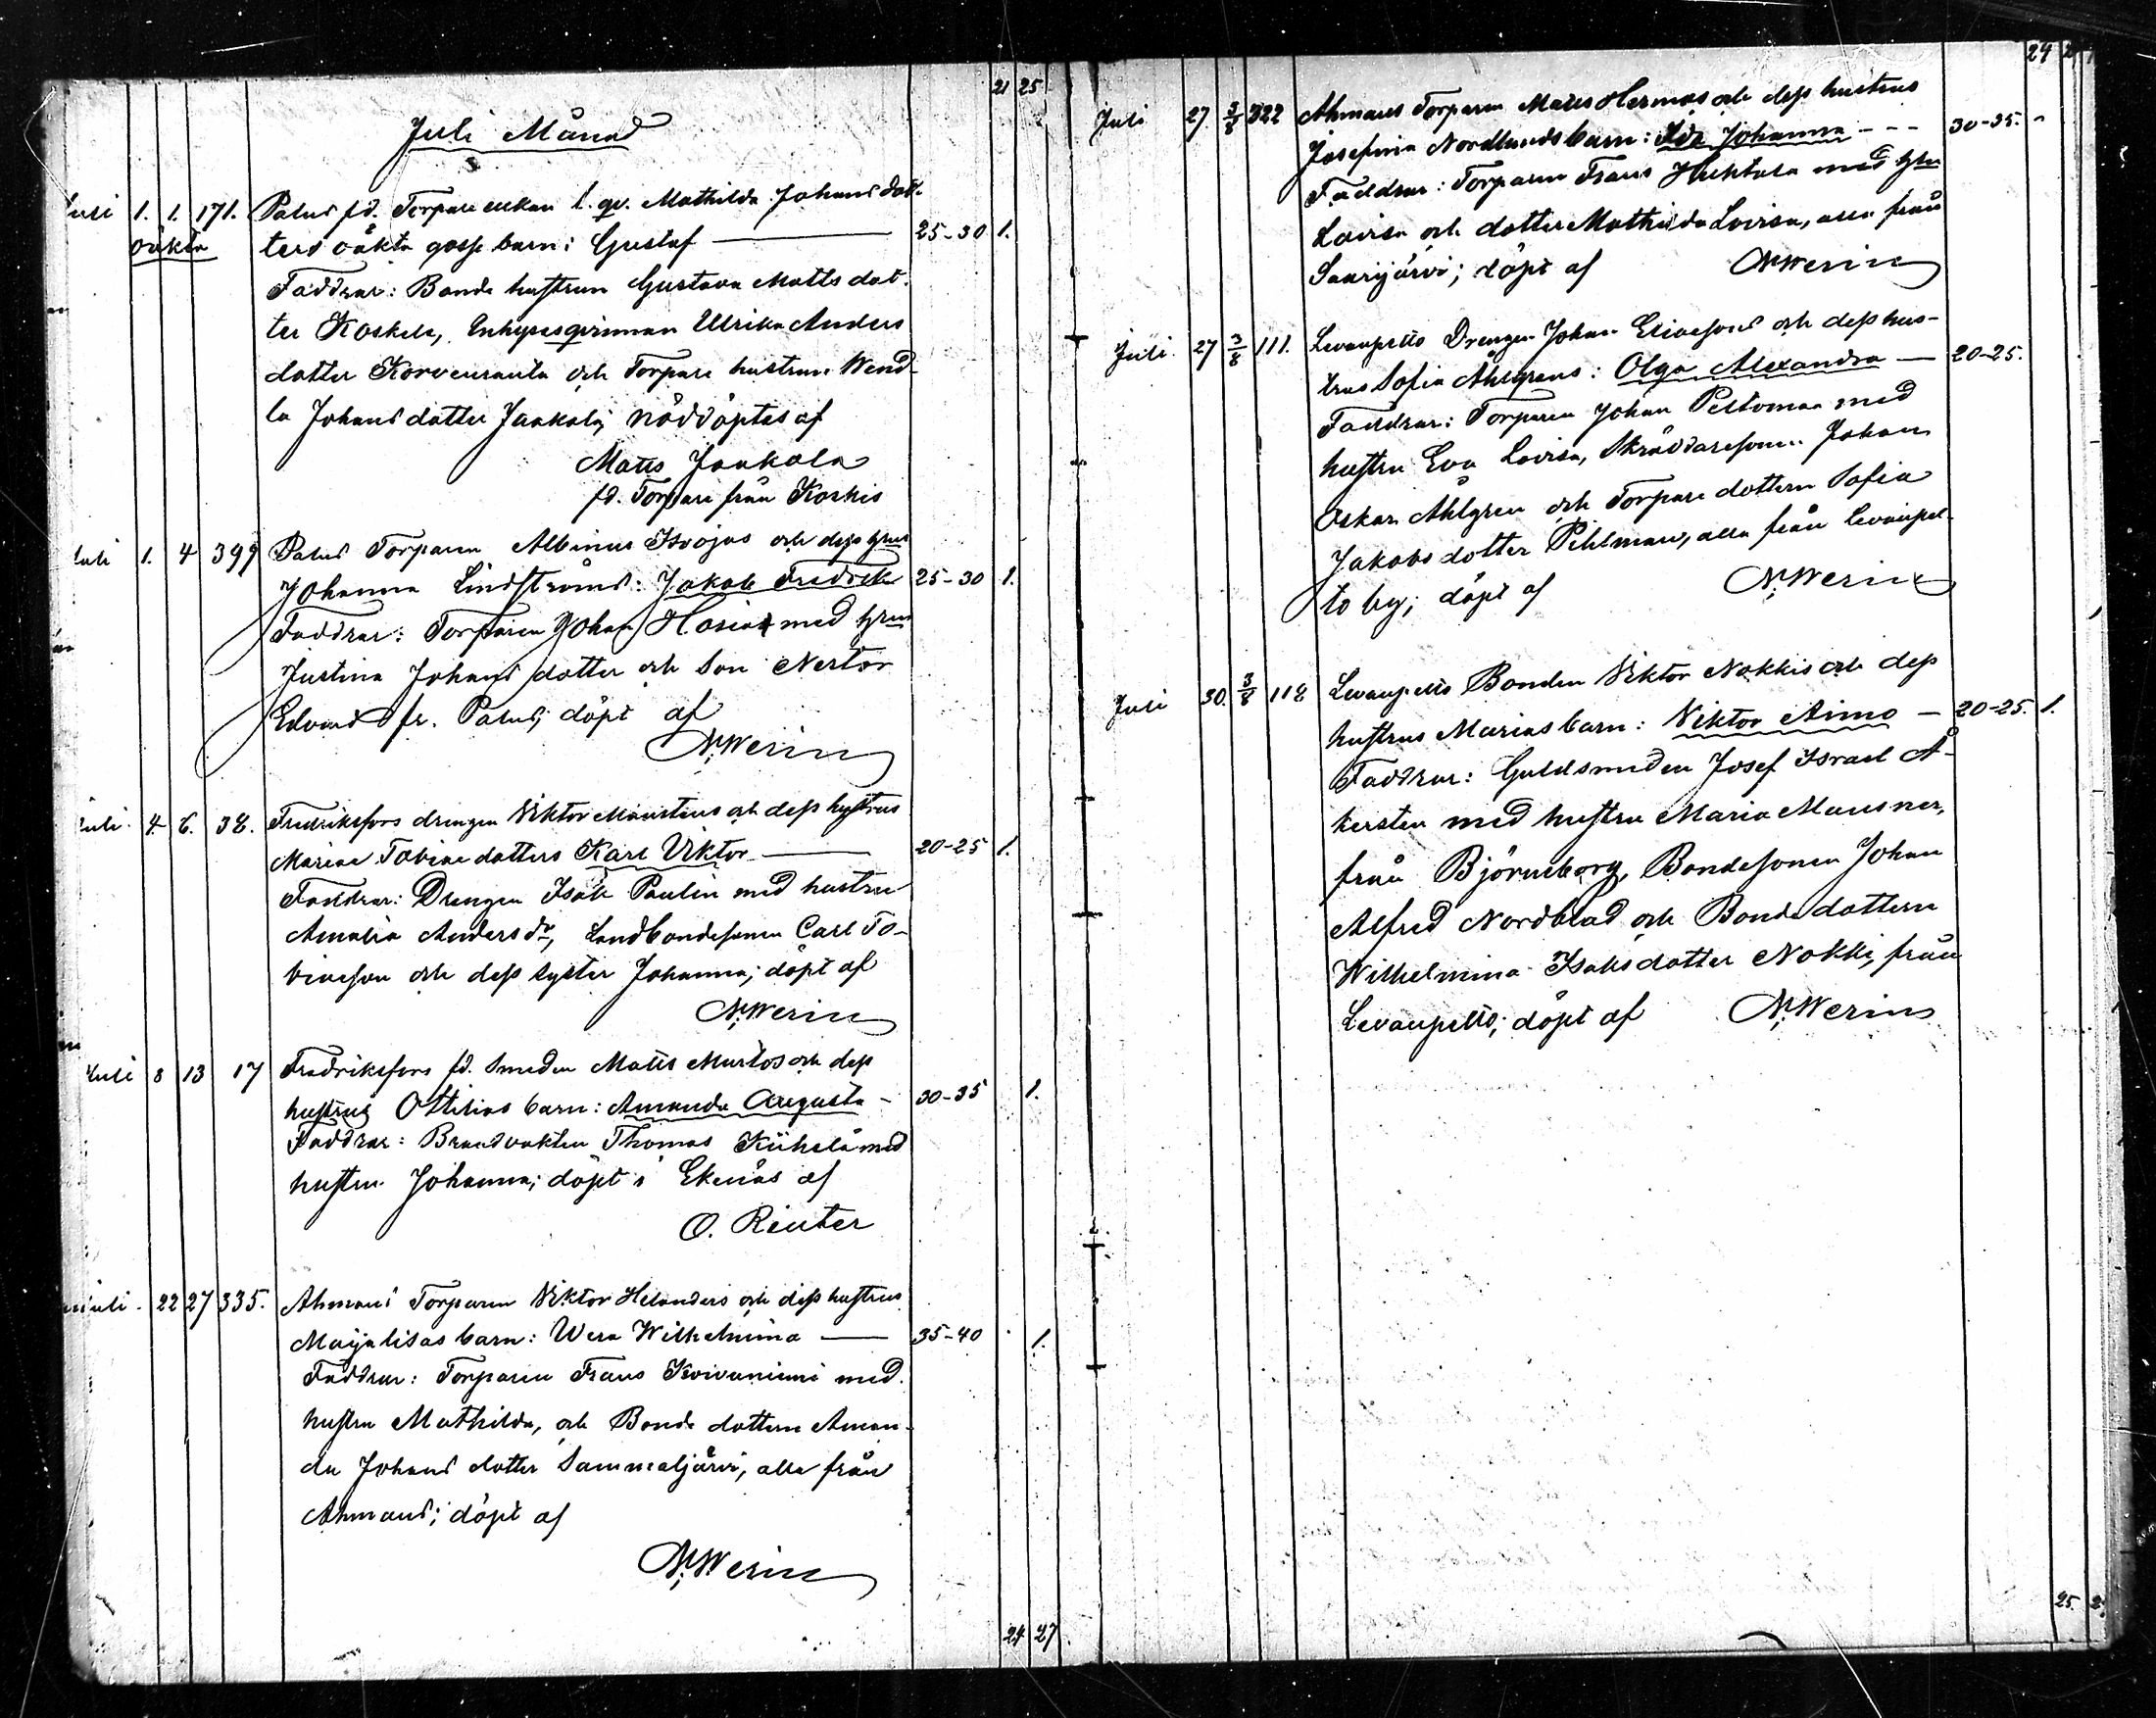 21 25
Juli Månad
Juli 1. 1. 171. Palus fd. Torpare enkan l. qv. Mathilda Johans dot-
oäkta ters oäkta gosse barn: Gustaf — 25-30 1.
Faddrar: Bonde hustrun Gustava Matts dot-
ter Koskela, Inhysesqvinnan Ulrika Anders
dotter Korvenranta och Torpare hustrun Wend-
la Johans dotter Jaakola; nöddöptes af
Matts Jaakola
fd. Torpare från Koskis
Juli 1. 4 399 Palus Torparen Albinus Isvojas och dess hrus
Johanna Lindströms: Jakob Fredrik 25-30 1.
Faddrar: Torparen Johan Hosia med hrun
Justina Johans dotter och Son Nestor
Edvard fr. Palus; döpt af
N. Werin
Juli 4 6. 38. Fredriksfors drengen Viktor och dess hustrus
Marias Tobias dotters Karl Viktor — 20-25 1.
Faddrar: Drengen Isak Paulin med hustru
Amalia Anders dr, Landbondesonen Carl To-
biasson och dess syster Johanna; döpt af
N. Werin
Juli 8 13 17 Fredriksfors fd. Smeden Matts Murtos och dess
hustrus Ottilias barn: Amanda Augusta - 30-35 1.
Faddrar: Brandvakten Thomas Kiihelä med
hustru Johanna; döpt i Ekenäs af
O. Reuter
Juli 22 27 335. Ahmaus Torparen Viktor Helanders och dess hustrus
Maijalisas barn: Wera Wilhelmina — 35-40 1.
Faddrar: Torparen Frans Koivuniemi med
hustru Mathilda, och Bonde dottern Aman-
da Johans dotter Sammaljärvi, alla från
Ahmaus; döpt af
N. Werin
24 27
24
Juli 27 3/8 322 Ahmaus Torparen Matts Hermas och dess hustrus
Josefina Nordlunds barn: Ida Johanna - - - 30-35.
Faddrar: Torparen Frans Huhtala med hru
Lovisa och dotter Mathilda Lovisa, alla från
Saarijärvi; döpt af N. Werin
Juli 27 3/8 111. Levanpelto Drengen Johan Eliassons och dess hus-
trus Sofia Ahlgrens: Olga Alexandra — 20-25.
Faddrar: Torparen Johan Peltomaa med
hustru Eva Lovisa, Skräddaresonen Johan
Oskar Ahlgren och Torpare dottern Sofia
Jakobs dotter Pihlman, alla från Levanpel-
to by; döpt af N. Werin
Juli 30. 3/8 118 Levanpelto Bonden Viktor Nokkis och dess
hustrus Marias barn: Viktor Aimo — 20-25. 1.
Faddrar: Guldsmeden Josef Israel Å-
kersten med hustru Maria Mausner,
från Björneborg, Bondesonen Johan
Alfred Nordblad och Bonde dottern
Wilhelmina Isaks dotter Nokki, från
Levanpelto; döpt af N. Werin
25.